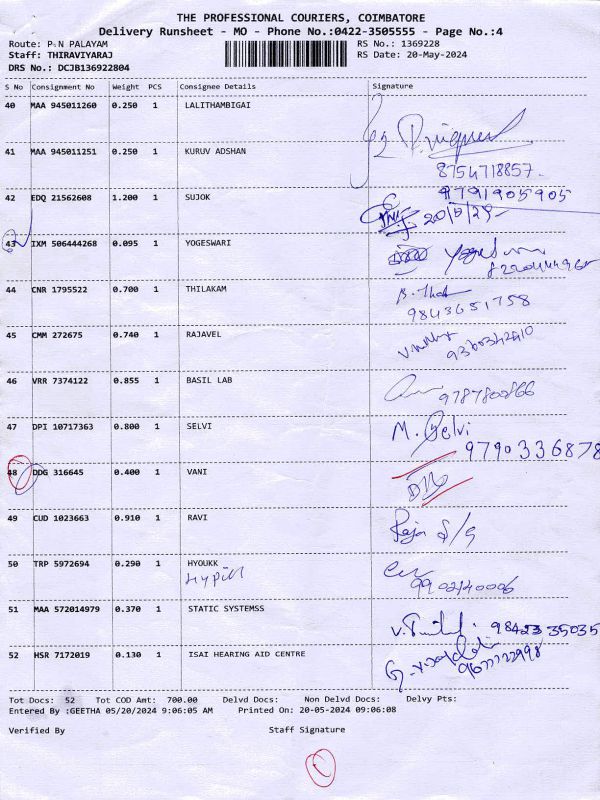 THE PROFESSIONAL COURIERS, COIMBATORE
Delivery Runsheet - MO - Phone No.:0422-3505555 - Page No.:4
Route: P N PALAYAM RS No.: 1369228
Staff: THIRAVIYARAJ RS Date: 20-May-2024
DRS No.: DCJB136922804
S No Consignment No Weight PCS Consignee Details Signature
40 MAA 945011260 0.250 1 LALITHAMBIGAI
41 MAA 945011251 0.250 1 KURUV ADSHAN
8754718857
9791905905
42 EDQ 21562608 1.200 1 SUJOK
43 IXM 506444268 0.095 1 YOGESWARI
44 CNR 1795522 0.700 1 THILAKAM B. Thak
9843651758
45 CMM 272675 0.740 1 RAJAVEL
46 VRR 7374122 0.855 1 BASIL LAB
47 DPI 10717363 0.800 1 SELVI M. Selvi
9790336878
48 DDG 316645 0.400 1 VANI
49 CUD 1023663 0.910 1 RAVI
50 TRP 5972694 0.290 1 HYOUKK
51 MAA 572014979 0.370 1 STATIC SYSTEMSS
9842335035
52 HSR 7172019 0.130 1 ISAI HEARING AID CENTRE
Tot Docs: 52 Tot COD Amt: 700.00 Delvd Docs: Non Delvd Docs: Delvy Pts:
Entered By :GEETHA 05/20/2024 9:06:05 AM Printed On: 20-05-2024 09:06:08
Verified By Staff Signature